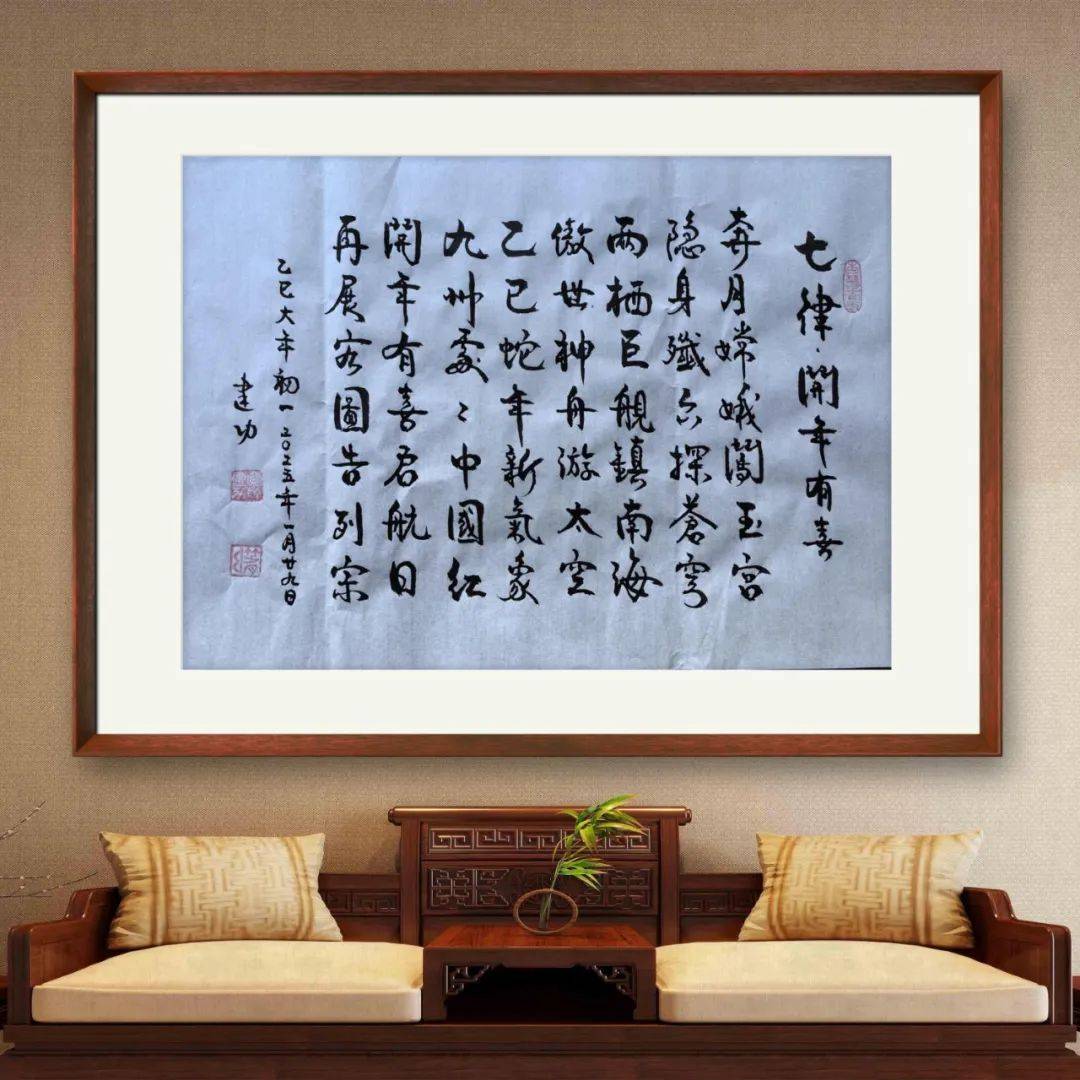 七律·開年有喜
奔月嫦娥闖玉宮
隐身殲六探蒼穹
兩栖巨舰鎮南海
傲世神舟游太空
乙巳蛇年新氣象
九州處〻中國紅
開年有喜君航日
再展宏圖告列宗
乙巳大年初一二〇二五年一月廿九日
建功